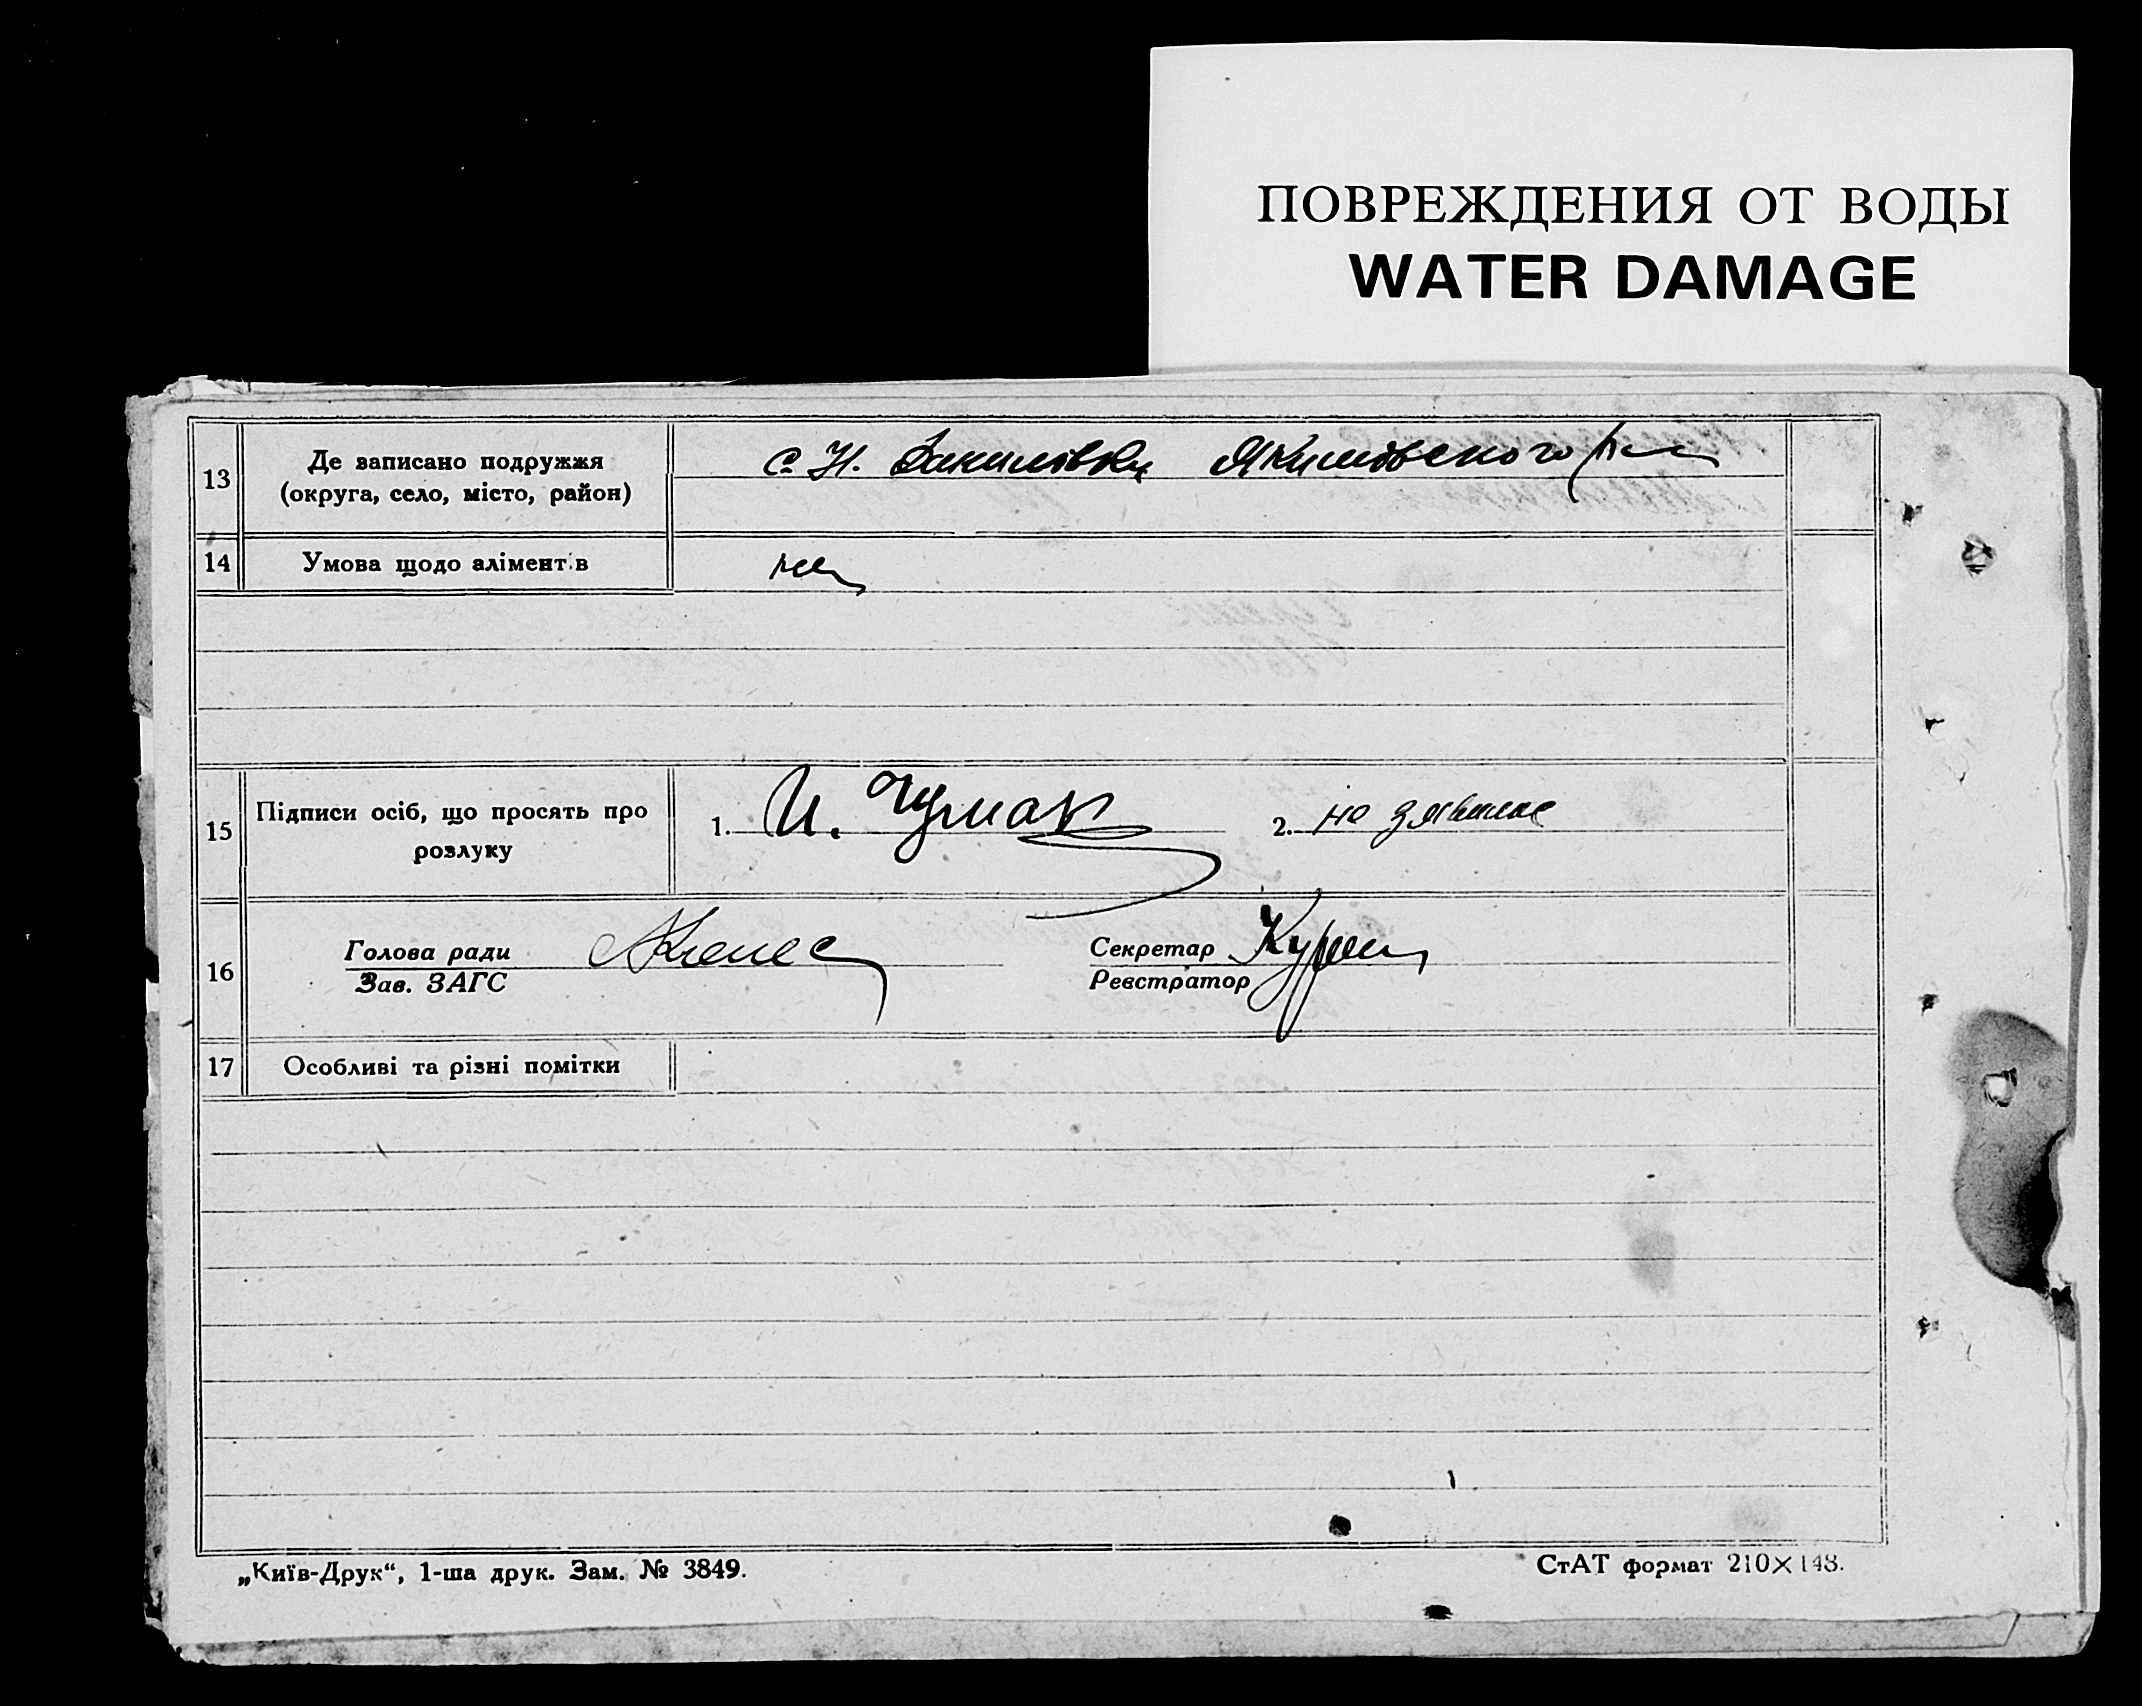 ПОВРЕЖДЕНИЯ ОТ ВОДЫ
WATER DAMAGE
13
Де записано подружжя
(округа, село, місто, район)
с. Н. Данилівка Якимовского
14
Умова щодо алімент.в
15
Підписи осіб, що просять про
розлуку
1. И. Чумак 2. не
16
Голова ради
Зав. ЗАГС
Секретар
Реєстратор
17
Особливі та різні помітки
„Київ-Друк“, 1-ша друк. Зам. № 3849.
СтАТ формат 210×148.